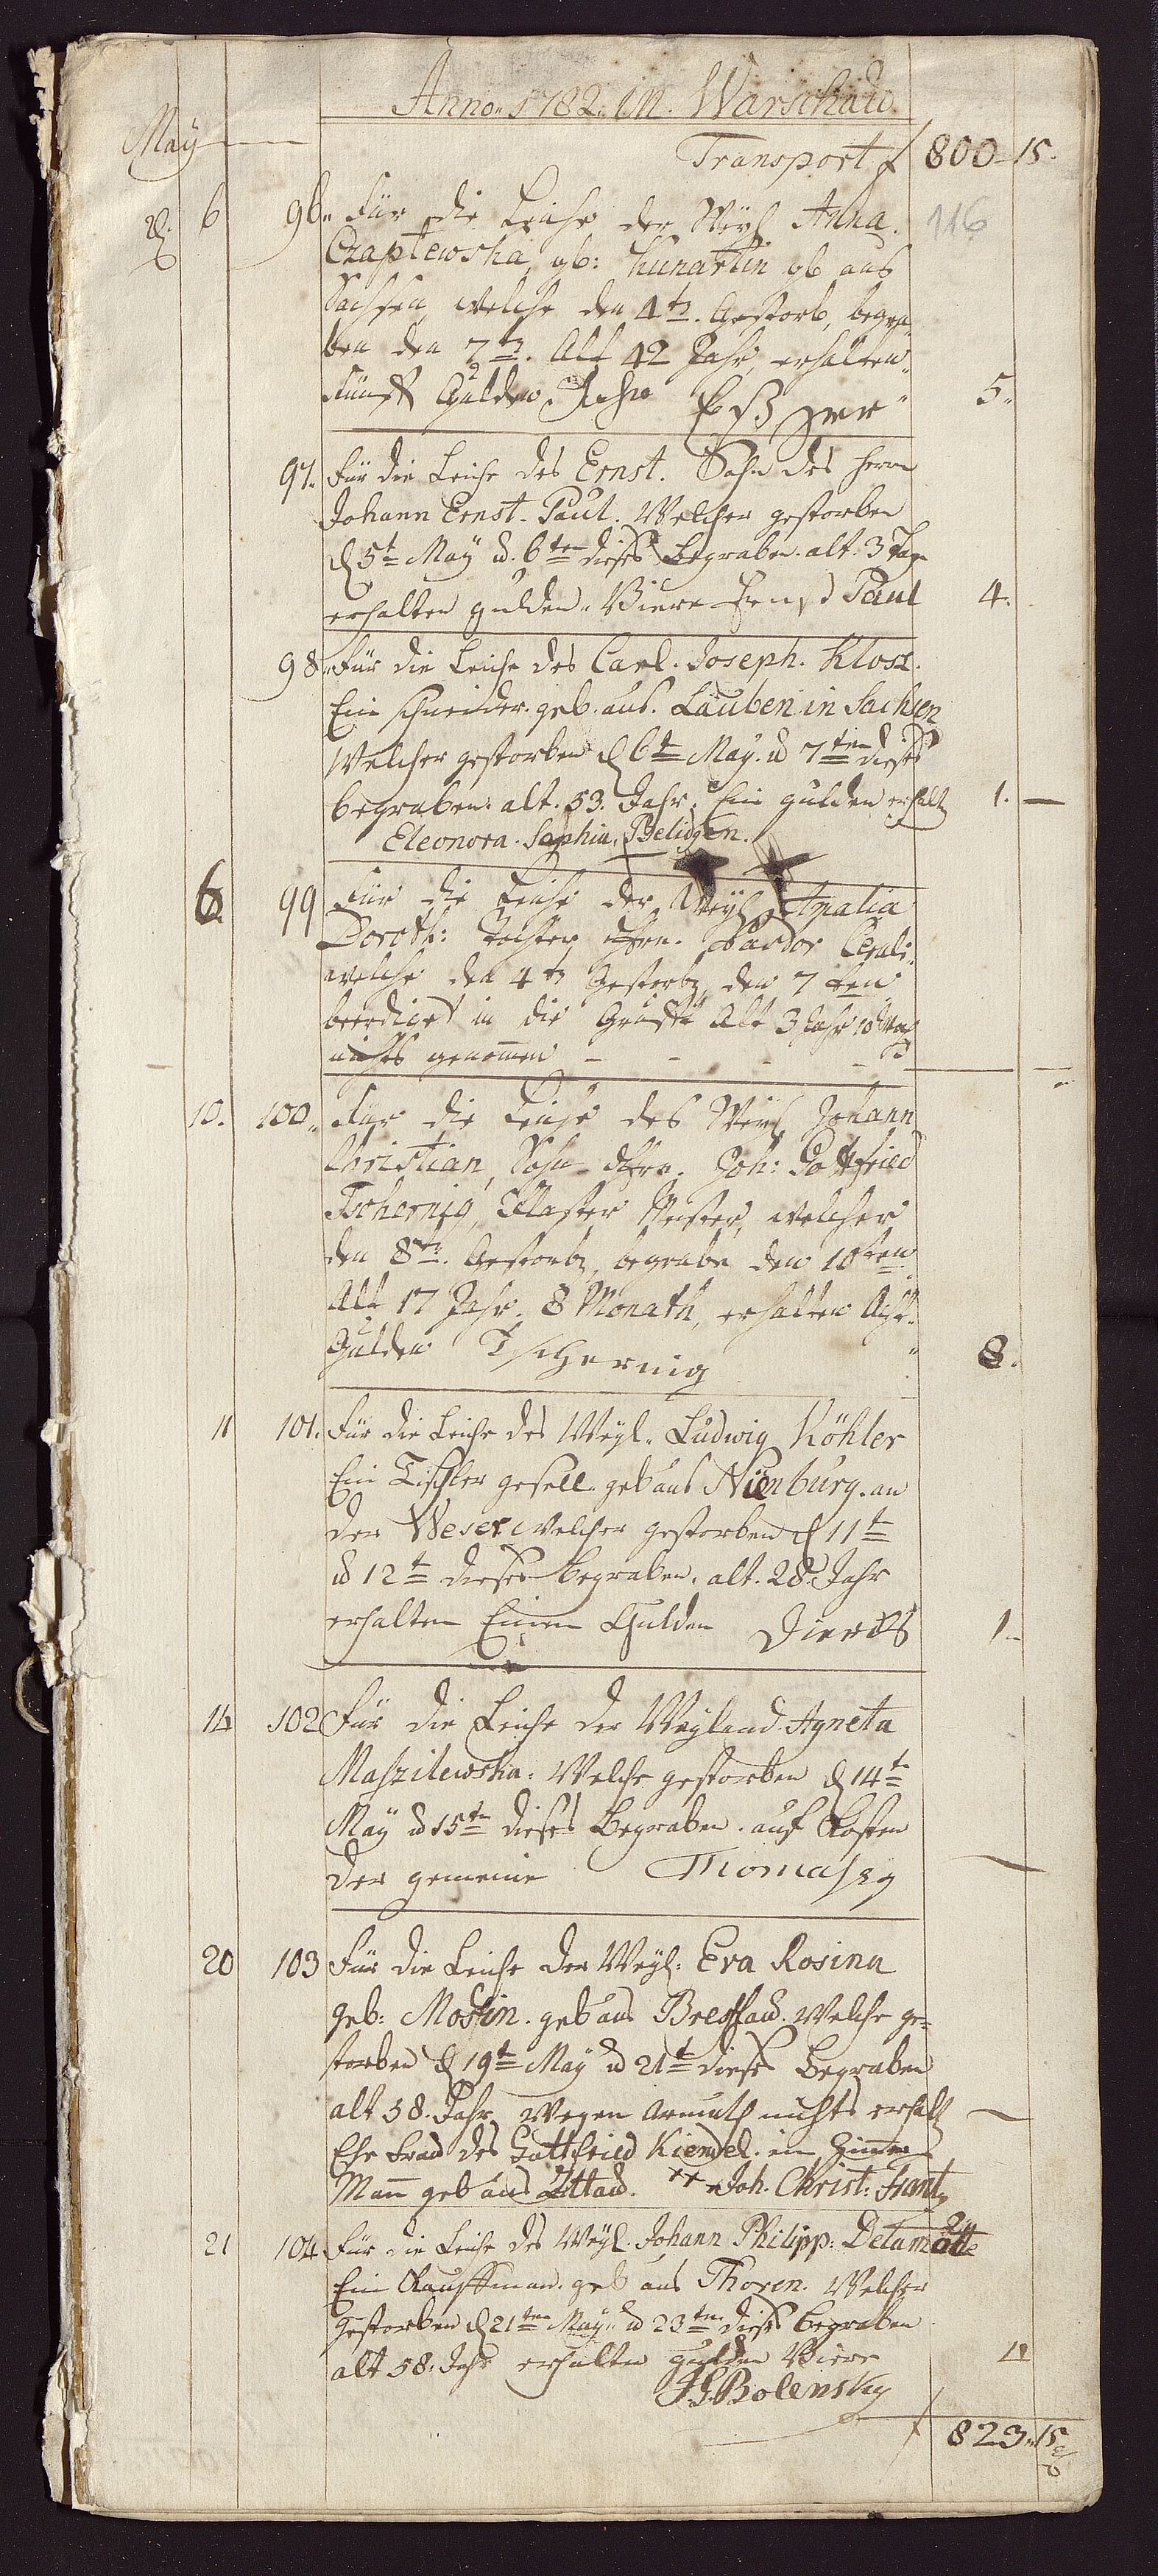 Anno 1782. in. Warschau.
May
Transport f 800 15.
d. 6 96. Für die Leiche der Weyl Anna. 116
Czaplewska, gb: Kunartin gb aus
Sachsen, welche den 4tn. Gestorb, begra„
ben den 7tn. Alt 42 Jahr, erhalten„
Fünf Gulden 5„
97. Für die Leiche des Ernst. Sohn des Herrn
Johann Ernst. Paul. Welcher gestorben
d 5t May d. 6ten dieses Begraben. alt. 3 Tage
erhalten gulden. Viere Ernst Paul 4.
98. Für die Leiche des Carl. Joseph. Kloss.
Ein schneider. geb. aus. Lauben in Sachsen
Welcher gestorben d 6t May. d 7ten dieses
begraben: alt. 53. Jahr. Ein gulden erhalt 1. —
Eleonora. Sophia. Beligen.
6 99 Für die Leiche der Weyl Amalia
Doroth: Tochter dHrn. Pastor
welche den 4tn Gestorb, den 7ten
beerdiget in die Grufft Alt 3 Jahr 10 Mo
nichts genomen - - - -
10. 100„ Für die Leiche des Weyl Johann
Christian, Sohn dHrn. Joh: Gottfried
Tschernig, Meister, welcher
den 8tn. Gestorb, begrabn den 10ten
Alt 17 Jahr. 8 Monath, erhalten Acht„
Gulden Tschernig 8.
11 101. Für die Leiche des Weyl. Ludwig Köhler
Ein Tischler gesell. geb aus Nienburg. an
der Weser welcher gestorben d 11t
d 12t dieses begraben. alt. 28. Jahr
erhalten Einen Gulden Dierks 1-
14 102 Für die Leiche der Weyland Agneta
Maszilewska. Welche gestorben d 14t
May d 15tn dieses Begraben. auf Kosten
der gemeine Thomaszy —
20 103 Für die Leiche der Weyl: Eva Rosina
geb: Mostin. geb aus Bresslau. Welche ge=
storben d 19t May d 21t dieses Begraben
alt 58. Jahr Wegen Armuth nichts erhalt —
Ehe Frau des Gottfried Kiendel. ein Zimmer
Mann geb aus Zittau. ** Joh. Christ: Frantz
21 104 Für die Leiche des Weyl. Johann Philipp: Delamotte
Ein Kauffman. geb aus Thoren. Welcher
Gestorben d 21ten May. d 23tn dieses begraben
alt 58. Jahr erhalten Gulden Viere 4
J.G. Bolensky
f 823„15